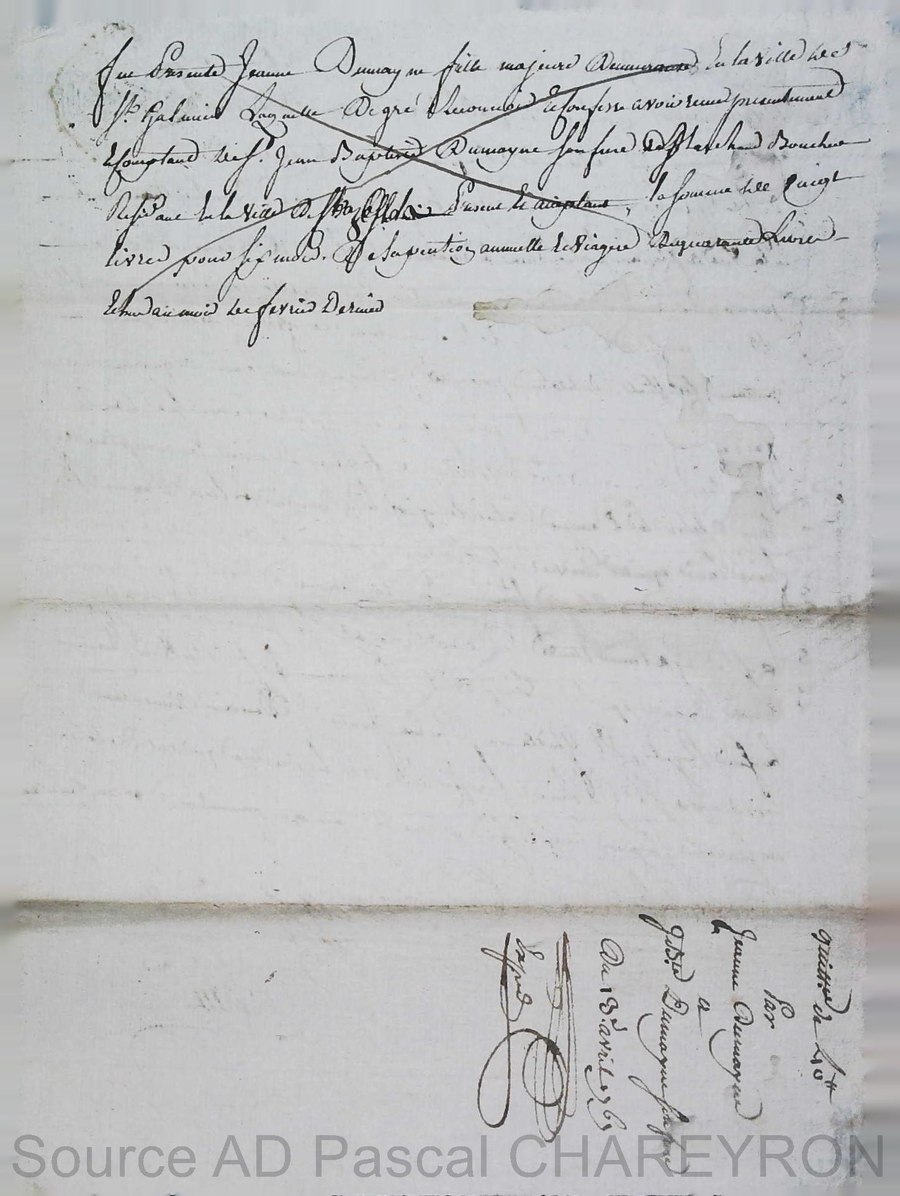 fut Presente Jeanne Dumayne fille majeure Demeurant En la ville de
St Galmier Laquelle De gré a reconnu & confessé avoir reçu presentement
& Comptant de Sr. Jean Baptiste Dumayne son frere Marchand Boucher
Residant En la ville De St Presene & aceptant, la somme de vingt
livres pour six mois. De sa pention annuelle & viagere De quarante Livres
Echus au mois de fevrier Dernier
quittce de 40 tt
Par
Jeanne Dumayne
a
jn bte Dumayne son frere
Du 18e avril 176
Exped
Source AD Pascal CHAREYRON